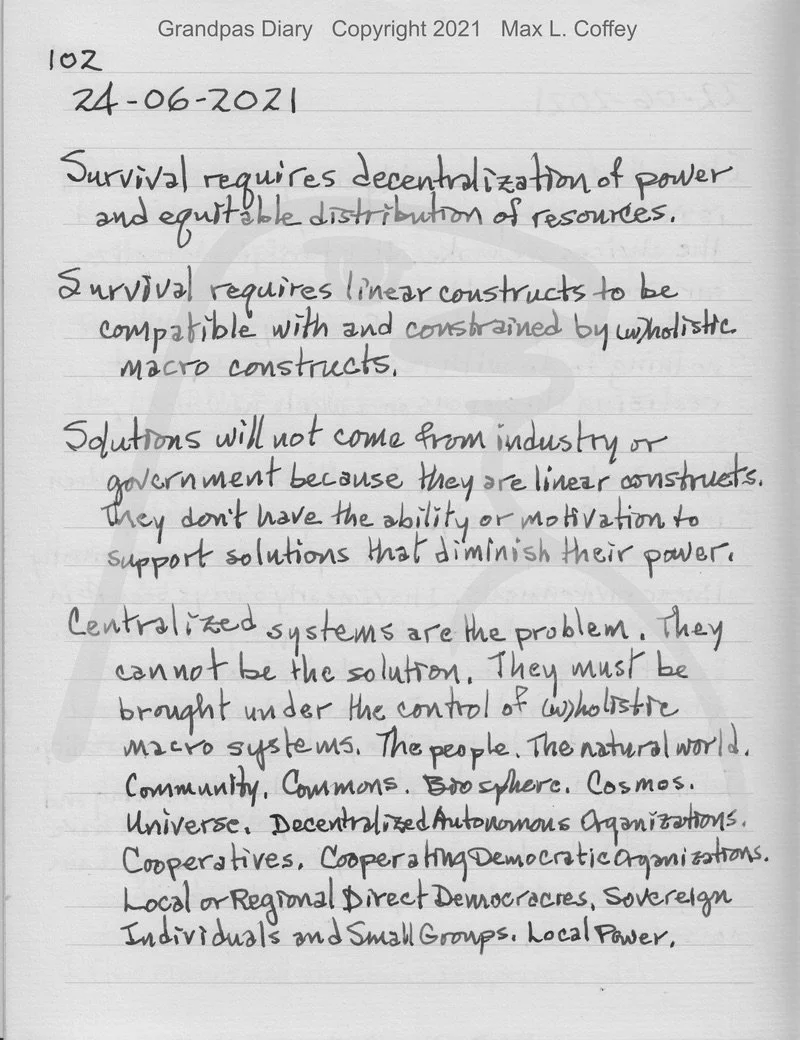 Grandpas Diary Copyright 2021 Max L. Coffey
102
24-06-2021
Survival requires decentralization of power
and equitable distribution of resources.
Survival requires linear constructs to be
compatible with and constrained by (w)holistic
macro constructs.
Solutions will not come from industry or
government because they are linear constructs.
They don't have the ability or motivation to
support solutions that diminish their power.
Centralized systems are the problem. They
cannot be the solution. They must be
brought under the control of (w)holistic
macro systems. The people. The natural world.
Community. Commons. Biosphere. Cosmos.
Universe. Decentralized Autonomous Organizations.
Cooperatives. Cooperating Democratic Organizations.
Local or Regional Direct Democracres. Sovereign
Individuals and Small Groups. Local Power.